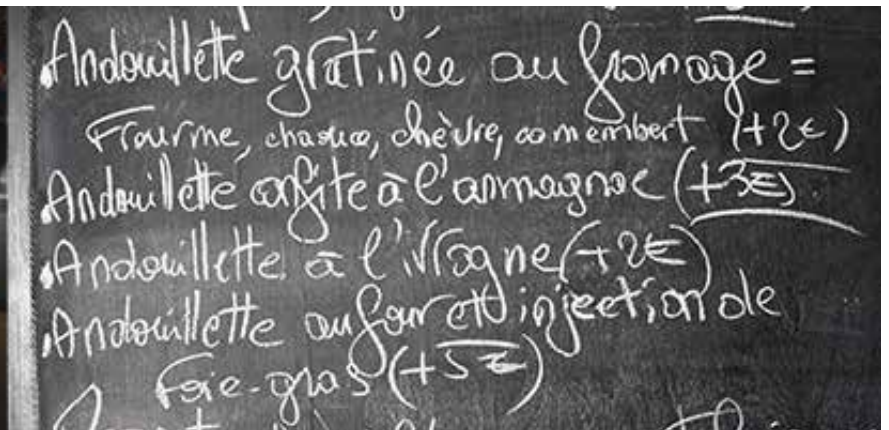 Andouillette gratinée au fromage =
Fourme, chaource, chèvre, camembert (+2€)
Andouillette confite à l'armagnac (+3€)
Andouillette à l'ivrogne (+2€)
Andouillette au four et injection de
Foie-gras (+5€)